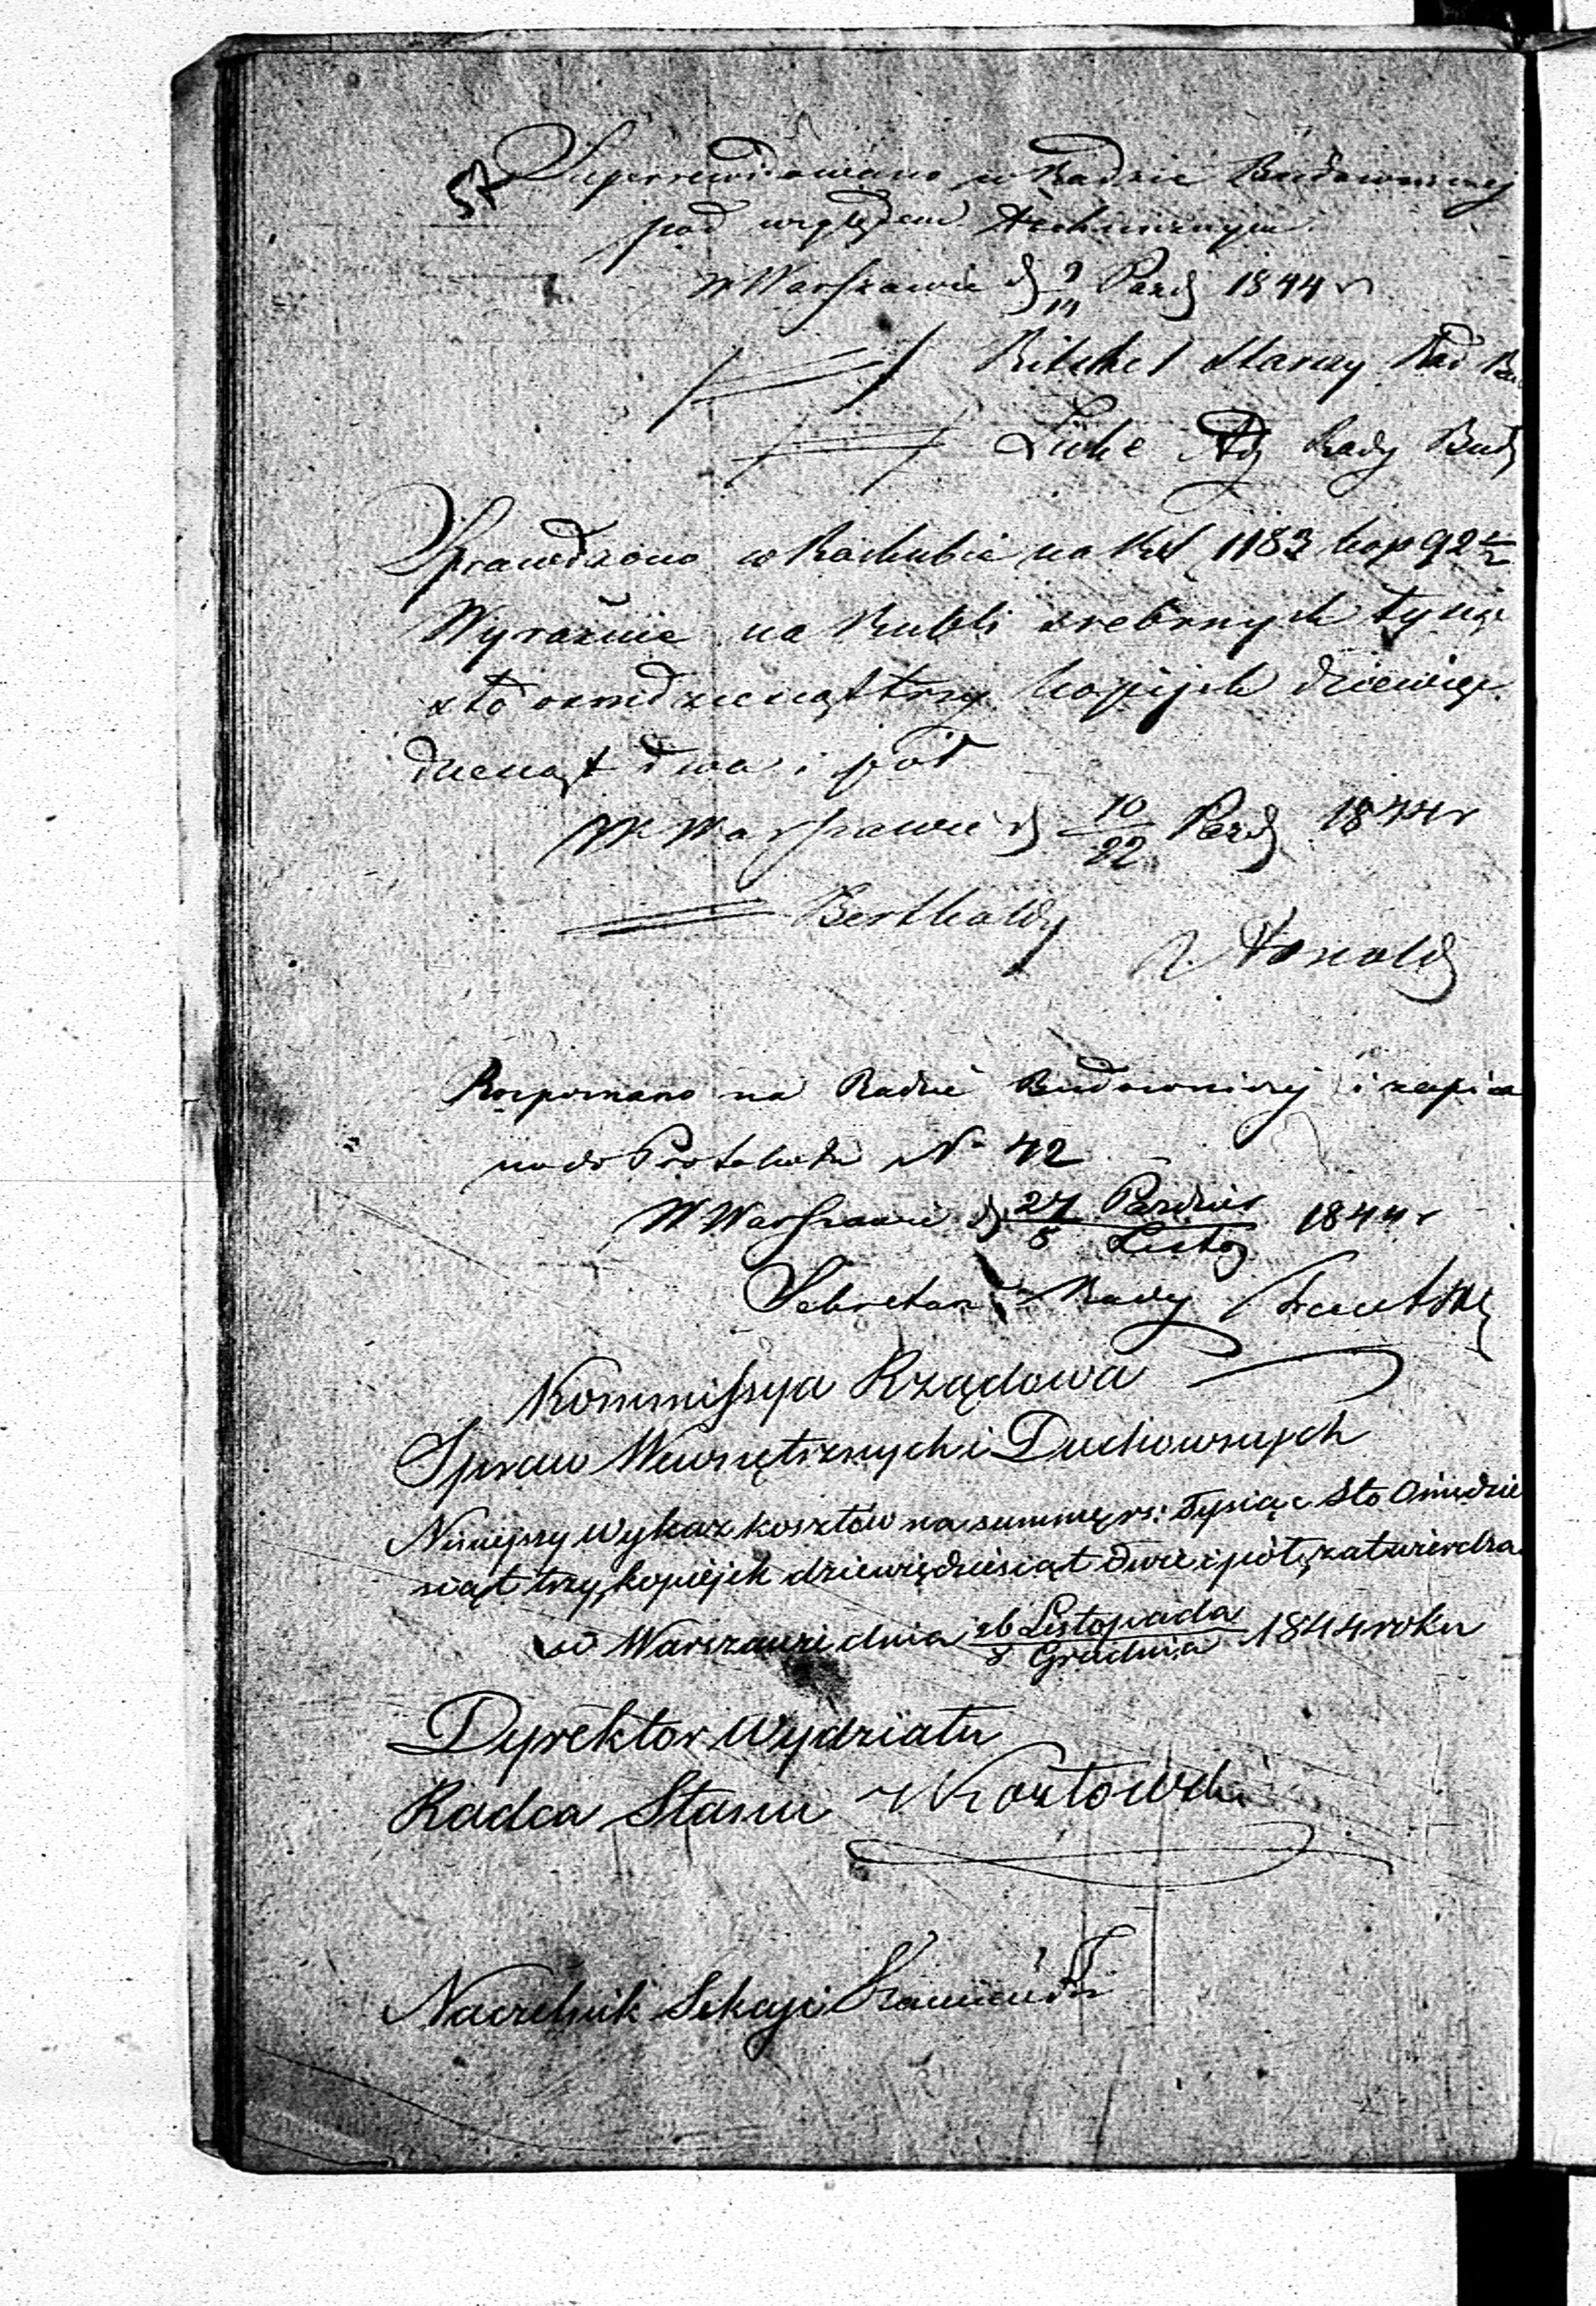 57
Superrewidowano w Radzie Budowniczej
pod względem technicznym
w Warszawie d 9 Pazd 1844 r
Ritchel starszy Rad
Rady Bud
Sprawdzono w Rachubie na Rs 1183 kop 92 1/2
Wyraźnie na Rubli srebrnych tysiąc
sto osmdziesiąt trzy kopijek dziewięć
dziesiąt dwa i pół
W Warszawie d 10/22 Pazd 1844 r
Berthold
Arnold
Rozpoznano na Radzie Budowniczej i zapisa
no do Protokułu No 42
W Warszawie d 27 Paździer/8 Listop 1844 r
Sekretarz Rady
Kommissya Rządowa
Spraw Wewnętrznych i Duchownych
Niniejszy wykaz kosztów na summę rs: Tysiąc Sto Ośmdzie
siąt trzy, kopiejek dziewięćdziesiąt dwie i pół, zatwierdza
w Warszawie dnia 26 Listopada/8 Grudnia 1844 roku
Dyrektor Wydziału
Radca Stanu Kozłowski
Naczelnik Sekcyi